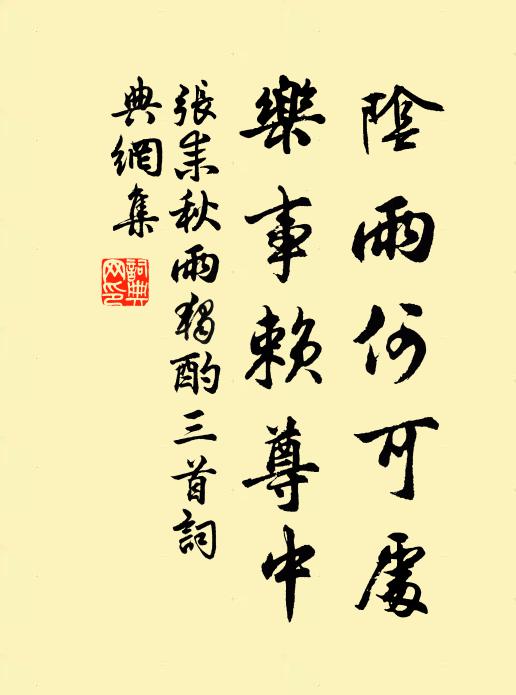 陰雨何可處
樂事賴尊中
張耒秋雨獨酌三首詞
典網集
詞典网印